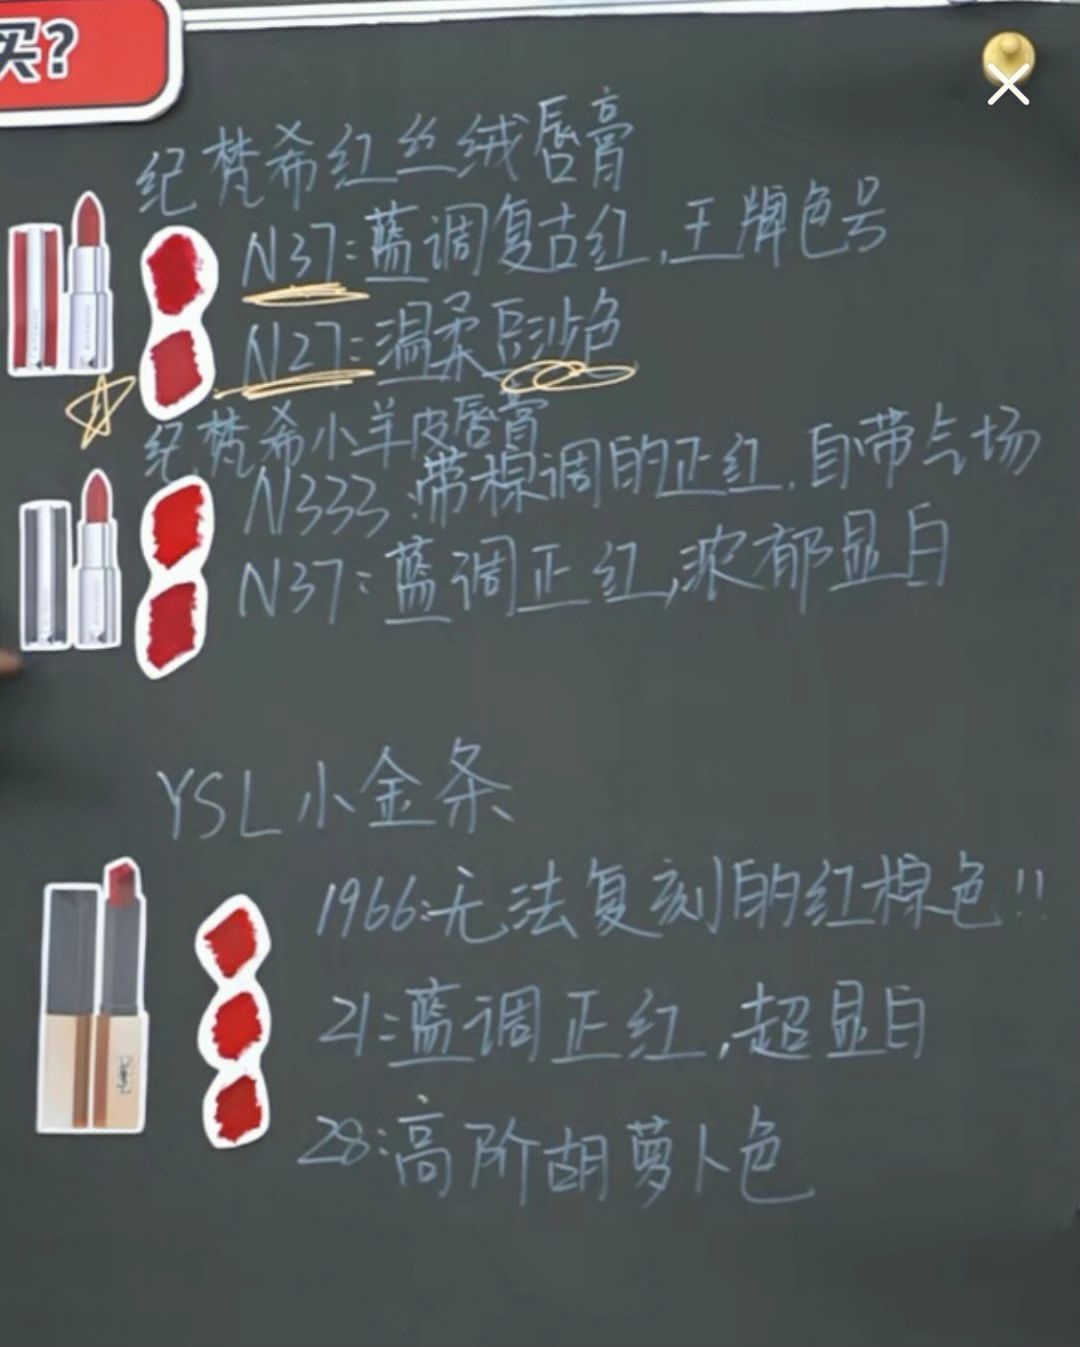 买?
纪梵希红丝绒唇膏
N37:蓝调复古红,王牌色号
N27:温柔豆沙色
纪梵希小羊皮唇膏
N333:带棕调的正红,自带气场
N37:蓝调正红,浓郁显白
YSL小金条
1966:无法复刻的红棕色!!
21:蓝调正红,超显白
28:高阶胡萝卜色